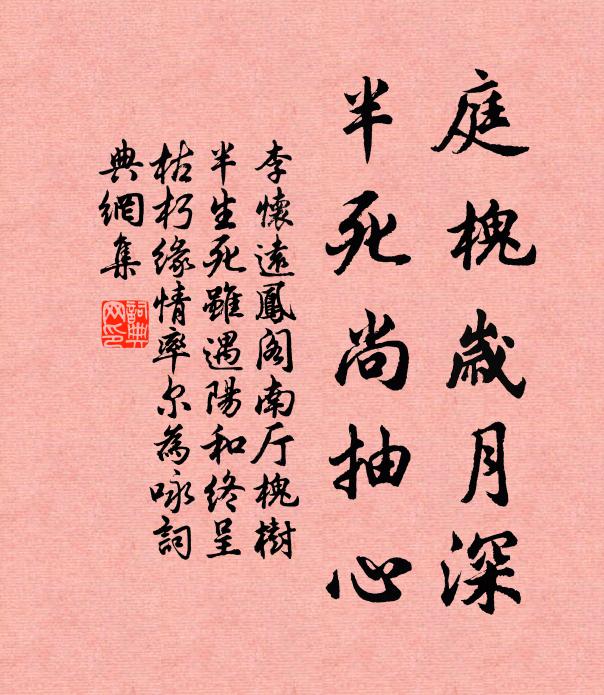 庭槐歲月深
半死尚抽心
李懷遠鳳阁南厅槐樹
半生死雖遇陽和终呈
枯朽缘情率尔為咏詞
典網集
詞典网印